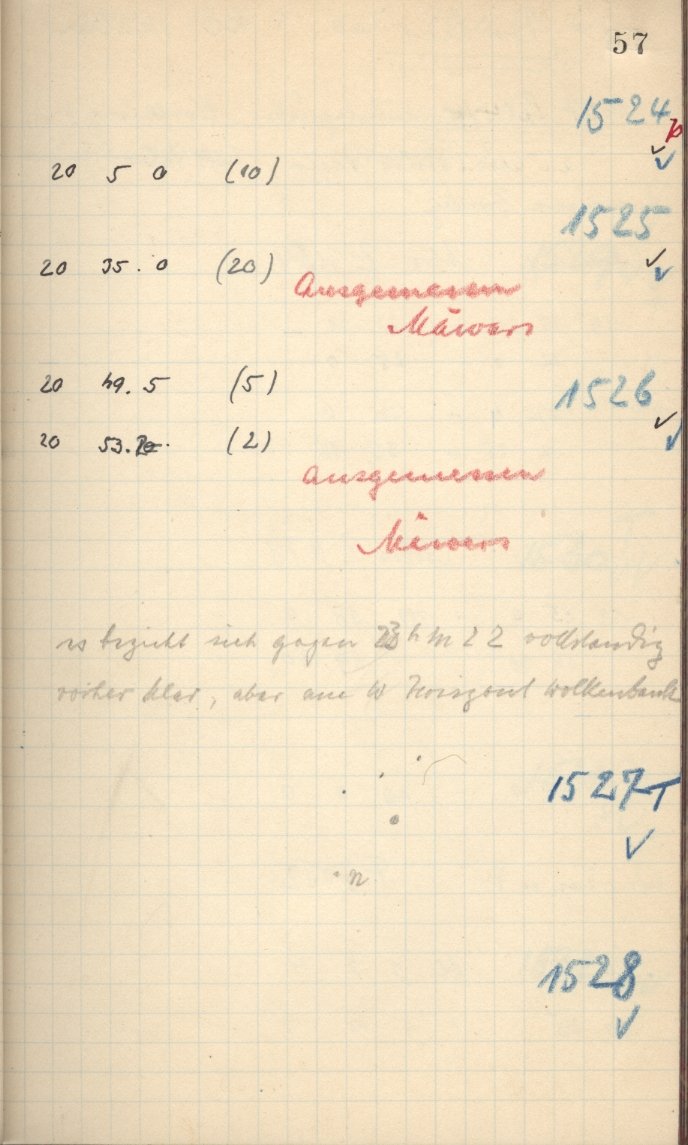 57
1524
20 5 0 (10)
1525
20 35. 0 (20)
Ausgemessen
20 49. 5 (5)
1526
20 53. (2)
Ausgemessen
es bezieht sich gegen h m vollständig
vorher klar, aber am W Horizont Wolkenbank
1527 T
n
1528